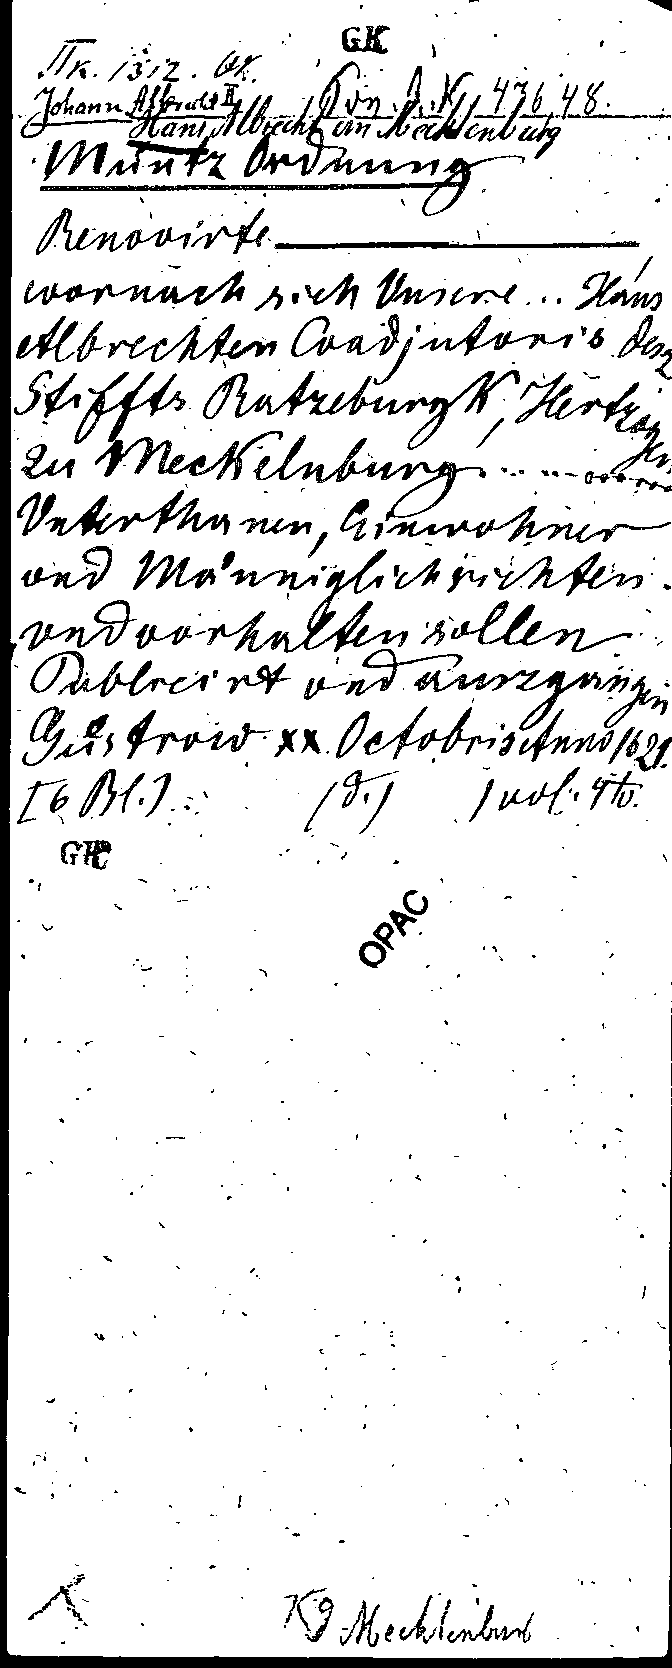 GK
IIk. 1312. OK.
Johann Albrecht II 43648.
Hans Albrecht Mecklenburg
Müntz Ordnung
Renovirte
wornach sich Unsere... Hans
Albrechten Coadjutoris desz
Stiffts Ratzeburgk, Hertzogen
zu Meckelnburg.......
Vnterthanen, Einwohner
vnd Männiglich richten
vnd vorhalten sollen
Publicirt vnd auszgangen
Güstrow xx Octobris Anno 1621.
[6 Bl.] (d.) 1 vol. 4to.
GK
OPAC
Kg Mecklenburg